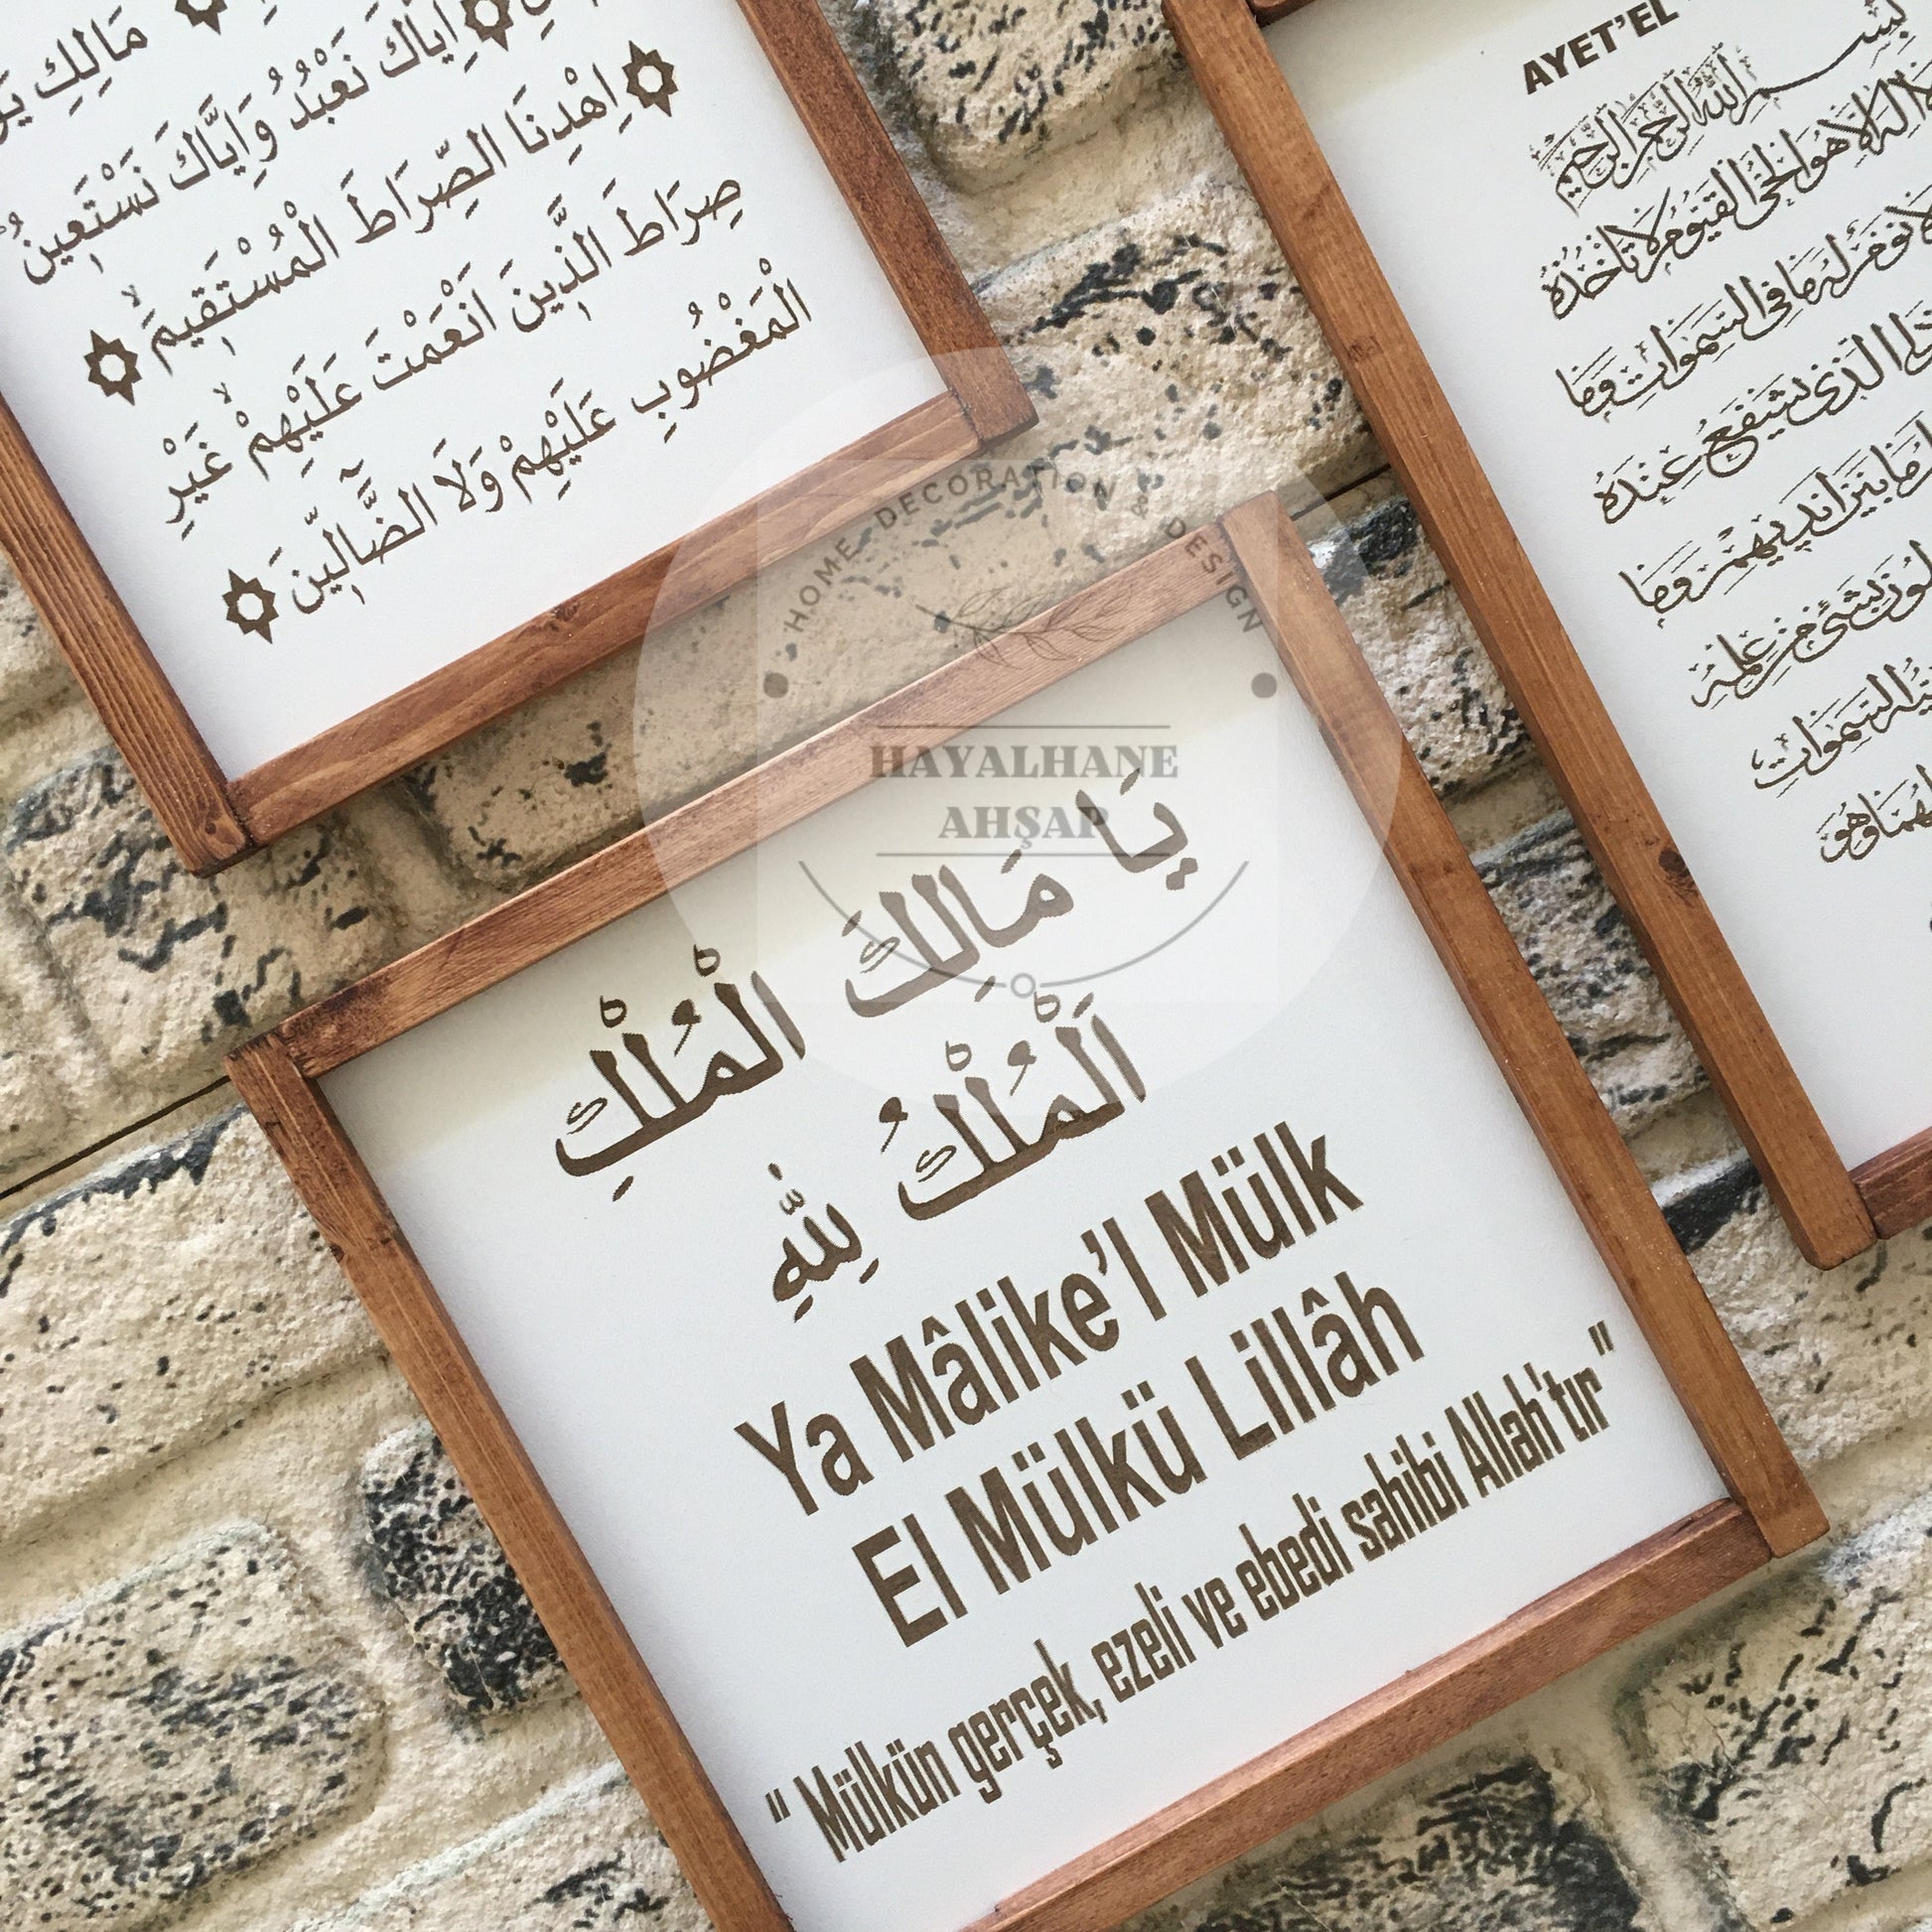 مَالِكِ
اِيَّاكَ نَعْبُدُ وَاِيَّاكَ نَسْتَعِينُ
اِهْدِنَا الصِّرَاطَ الْمُسْتَقِيمَ
صِرَاطَ الَّذِينَ اَنْعَمْتَ عَلَيْهِمْ غَيْرِ
الْمَغْضُوبِ عَلَيْهِمْ وَلَا الضَّٓالِّينَ
AYET'EL
بِسْمِ اللّٰهِ الرَّحْمٰنِ الرَّحِيمِ
اِلٰهَ اِلَّا هُوَ الْحَيُّ الْقَيُّومُ لَا تَأْخُذُهُ
نَوْمٌ لَهُ مَا فِي السَّمٰوَاتِ وَمَا
ذَا الَّذِي يَشْفَعُ عِنْدَهُ
مَا بَيْنَ اَيْدِيهِمْ وَمَا
بِشَيْءٍ مِنْ عِلْمِهِ
السَّمٰوَاتِ
وَهُوَ
HOME DECORATION & DESIGN
HAYALHANE
AHŞAP
يَا مَالِكَ الْمُلْكِ
اَلْمُلْكُ لِلّٰهِ
Ya Mâlike'l Mülk
El Mülkü Lillâh
" Mülkün gerçek, ezeli ve ebedi sahibi Allah'tır"